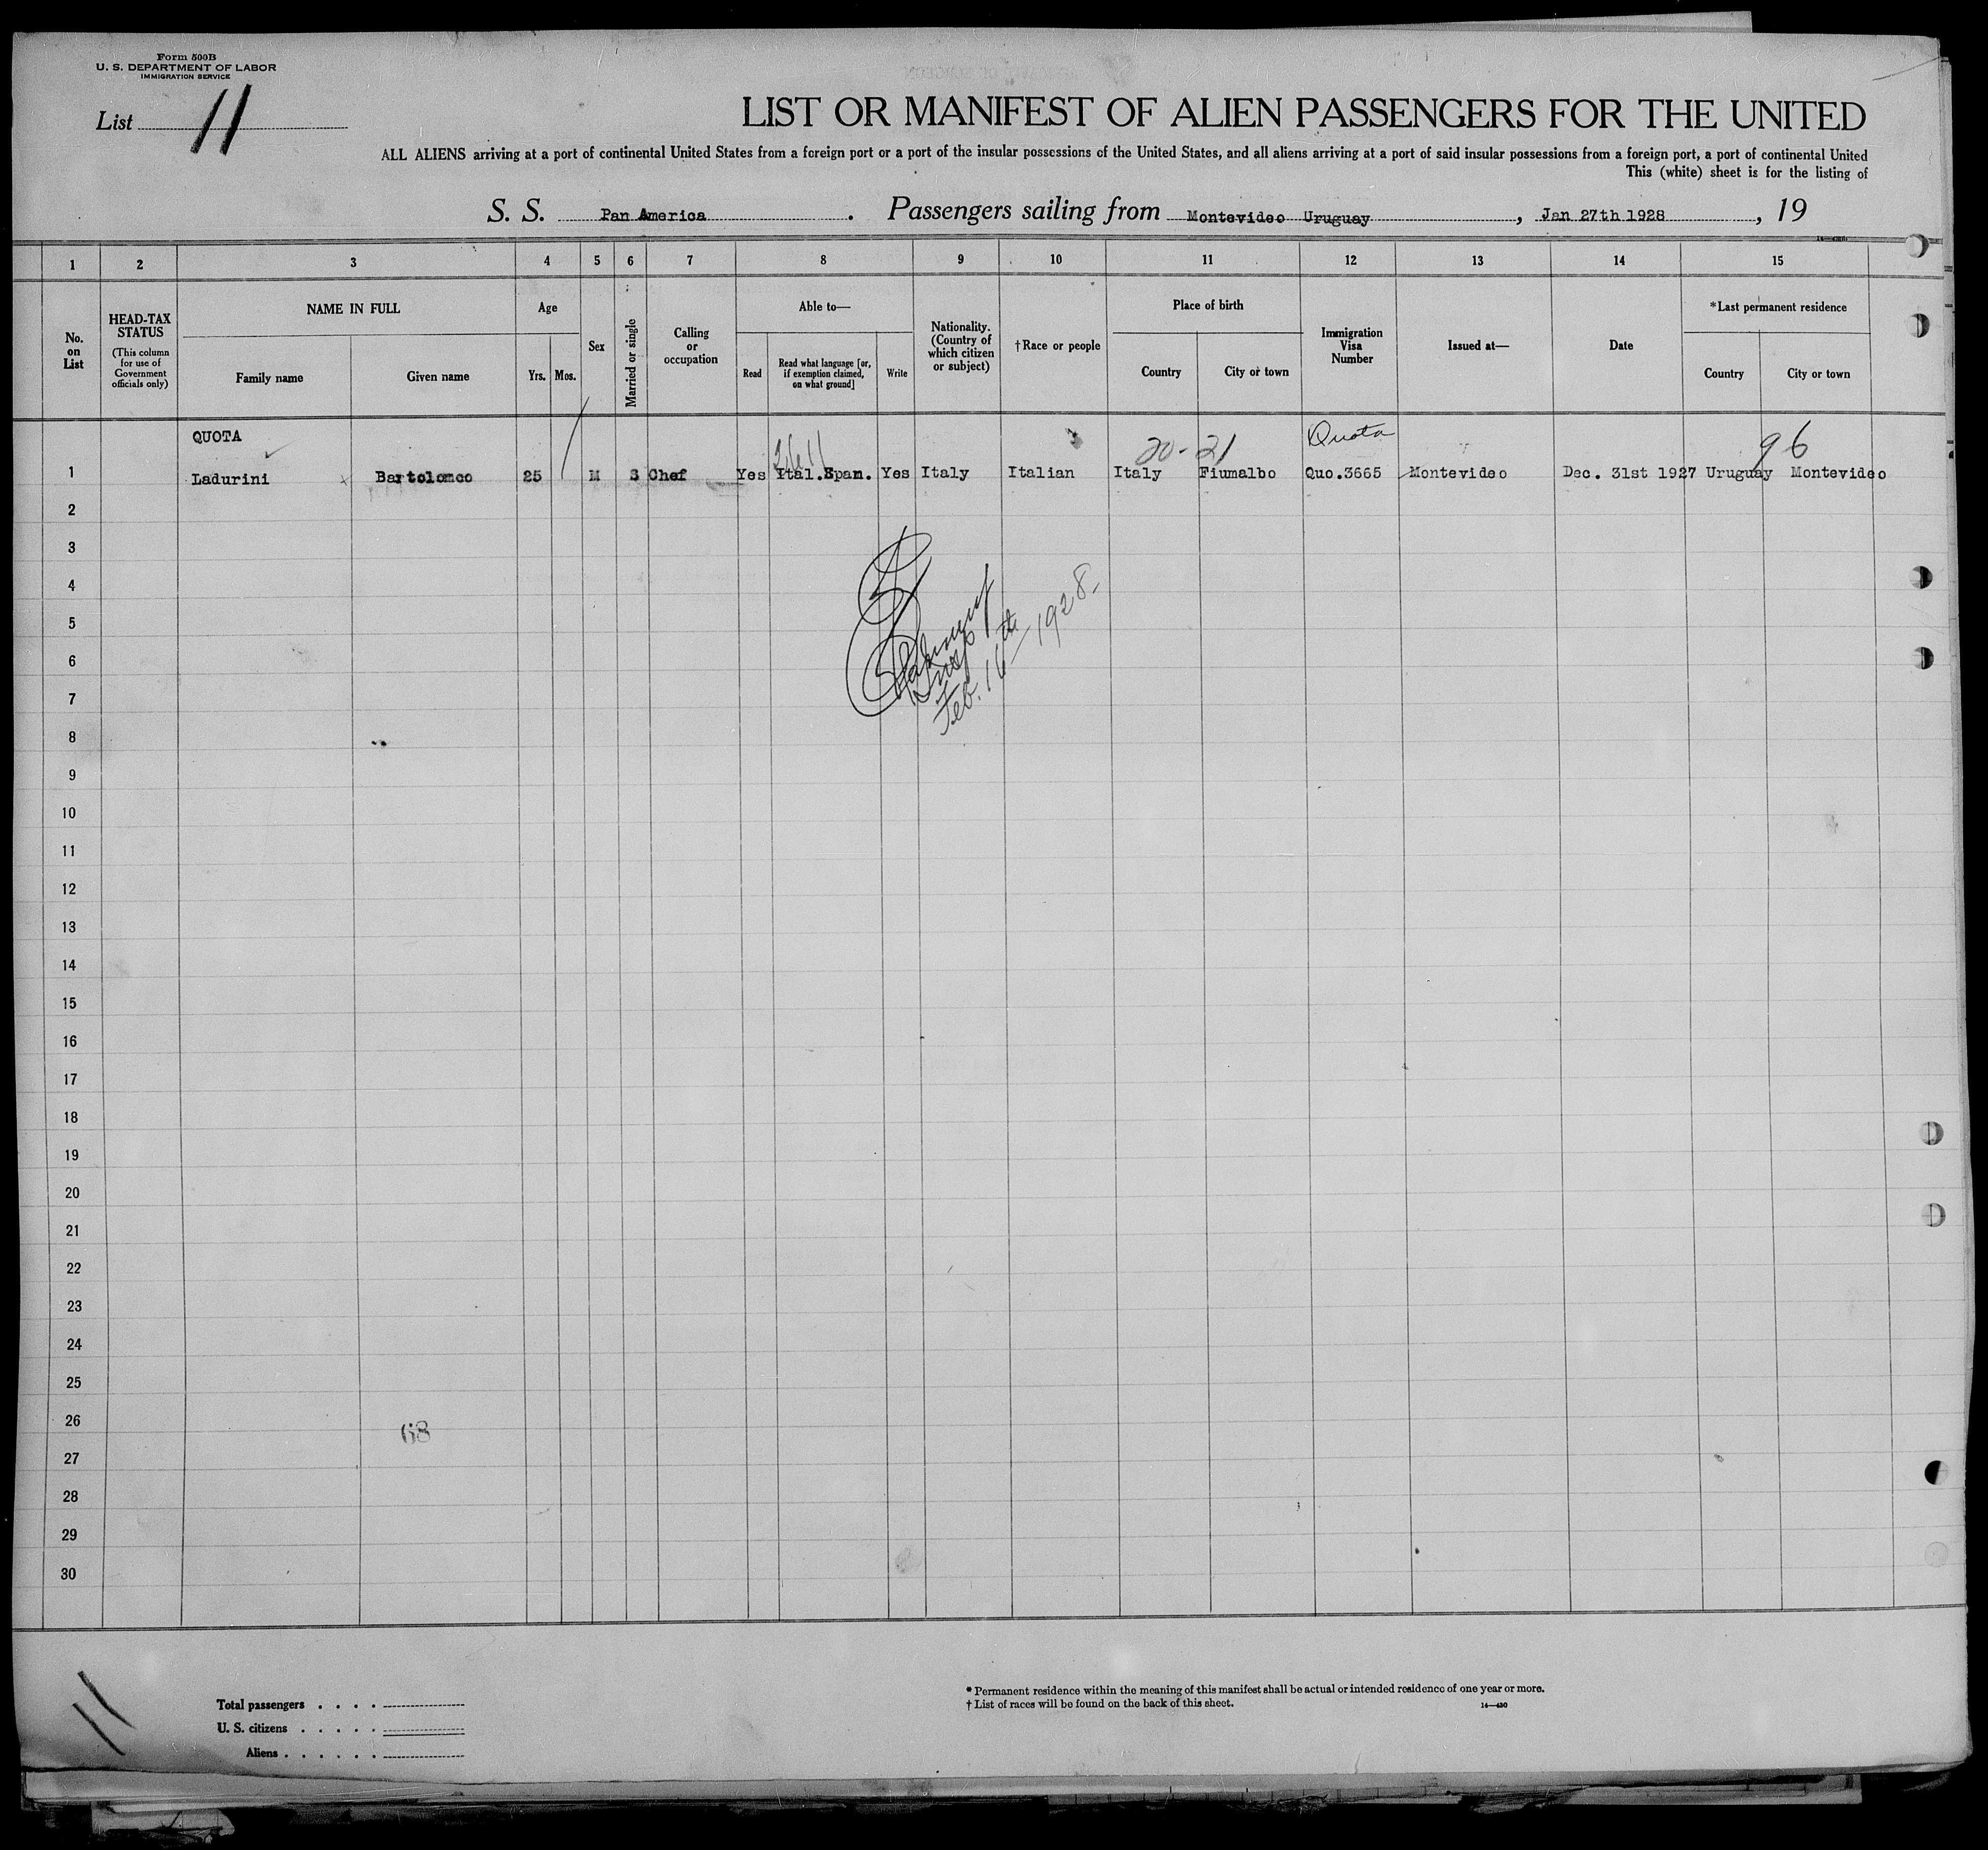 Form 500B
U. S. DEPARTMENT OF LABOR
IMMIGRATION SERVICE
List 11
LIST OR MANIFEST OF ALIEN PASSENGERS FOR THE UNITED
ALL ALIENS arriving at a port of continental United States from a foreign port or a port of the insular possessions of the United States, and all aliens arriving at a port of said insular possessions from a foreign port, a port of continental United
This (white) sheet is for the listing of
S. S. Pan America. Passengers sailing from Montevideo Uruguay, Jan 27th 1928, 19
1 2 3 4 5 6 7 8 9 10 11 12 13 14 15
No. on List
HEAD-TAX STATUS
(This column for use of Government officials only)
NAME IN FULL
Family name
Given name
Age
Yrs.
Mos.
Sex
Married or single
Calling or occupation
Able to—
Read
Read what language [or, if exemption claimed, on what ground]
Write
Nationality. (Country of which citizen or subject)
† Race or people
Place of birth
Country
City or town
Immigration Visa Number
Issued at—
Date
*Last permanent residence
Country
City or town
QUOTA
20-21 Quota 96
1 Ladurini Bartolomeo 25 M S Chef Yes Ital.Span. Yes Italy Italian Italy Fiumalbo Quo.3665 Montevideo Dec. 31st 1927 Uruguay Montevideo
2
3
4
5
6
7
Insp
Feb. 16th 1928
8
9
10
11
12
13
14
15
16
17
18
19
20
21
22
23
24
25
26
68
27
28
29
30
11
Total passengers . . . .
U. S. citizens . . . . .
Aliens . . . . . .
* Permanent residence within the meaning of this manifest shall be actual or intended residence of one year or more.
† List of races will be found on the back of this sheet.
14—430